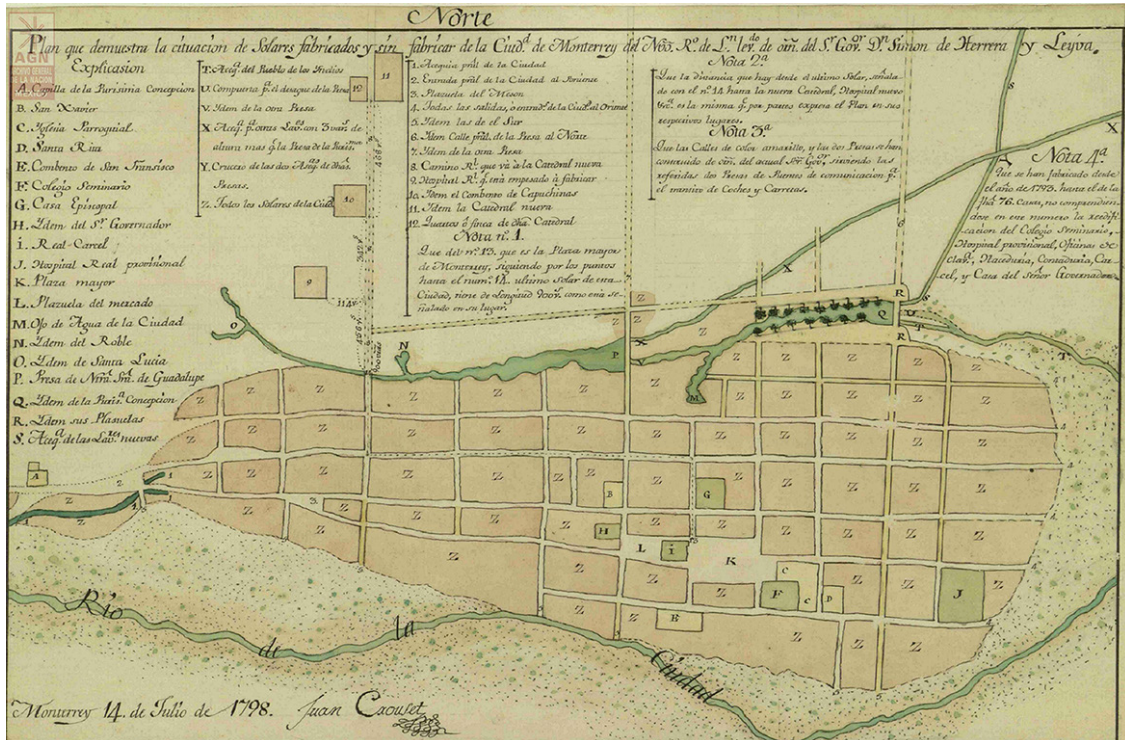 Norte
AGN
ARCHIVO GENERAL
DE LA NACION
Plan que demuestra la cituacion de Solares fabricados y sin fabricar de la Ciud.d de Monterrey del Nvo. R.o de L.n lev.do de orn. del S.r Gov.or D.n Simon de Herrera y Leyva.
Explicasion
A. Capilla de la Purisima Concepcion
B. San Xavier
C. Iglesia Parroquial
D. Santa Rita
E. Combento de San Fransisco
F. Colegio Seminario
G. Casa Episcopal
H. Ydem del S.r Governador
i. Real Carcel
J. Hospital Real provisional
K. Plaza mayor
L. Plazuela del mercado
M. Ojo de Agua de la Ciudad
N. Ydem del Roble
O. Ydem de Santa Lucia
P. Presa de Ntra. Sra. de Guadalupe
Q. Ydem de la Puris.a Concepcion
R. Ydem sus Plasuelas
S. Aceq.a de las Lav.res nuevas
T. Aceq.a del Pueblo de los Yndios
U. Compuerta p.a el desague de la Presa
V. Ydem de la otra Presa
X. Aceq.a p.a otras Lav.res con 3 varas de
altura mas q.e la Presa de la Puris.ma
Y. Crucero de las dos Aceq.as de dhas.
Presas.
Z. Todos los Solares de la Ciud.
1. Acequia pral. de la Ciudad
2. Entrada pral. de la Ciudad al Poniente
3. Plazuela del Meson
4. Todas las salidas, o entrad.s de la Ciud. al Oriente
5. Ydem las de el Sur
6. Ydem Calle pral. de la Presa al Norte
7. Ydem de la otra Presa
8. Camino R.l que va à la Catedral nueva
9. Hospital R.l q.e está empesado à fabricar
10. Ydem el Combento de Capuchinas
11. Ydem la Catedral nueva
12. Quartos ó finca de dha. Catedral
Nota n.o 1.
Que del n.o 13. que es la Plaza mayor
de Monterrey, siguiendo por los puntos
hasta el num.o 14. ultimo solar de esta
Ciudad, tiene de Longitud 900 v.s como está se-
ñalado en su lugar.
Nota 2.a
Que la distancia que hay desde el ultimo Solar, señala-
do con el n.o 14 hasta la nueva Catedral, Hospital nuevo
es la misma q.e por partes expresa el Plan en sus
respectivos lugares.
Nota 3.a
Que las Calles de color amarillo, y las dos Presas se han
construido de orn. del actual S.or Gov.or sirviendo las
referidas dos Presas de Puentes de comunicacion p.a
el trancito de Coches y Carretas.
Nota 4.a
Que se han fabricado desde
el año de 1795. hasta el de la
fha. 76. Casas, no comprendien-
dose en este numero la reedifi-
cacion del Colegio Seminario,
Hospital provisional, Oficinas de
Clav.a, Haceduria, Contaduria, Car-
cel, y Casa del Señor Governador.
Rio de la Ciudad
Monterrey 14. de Julio de 1798. Juan Crouset